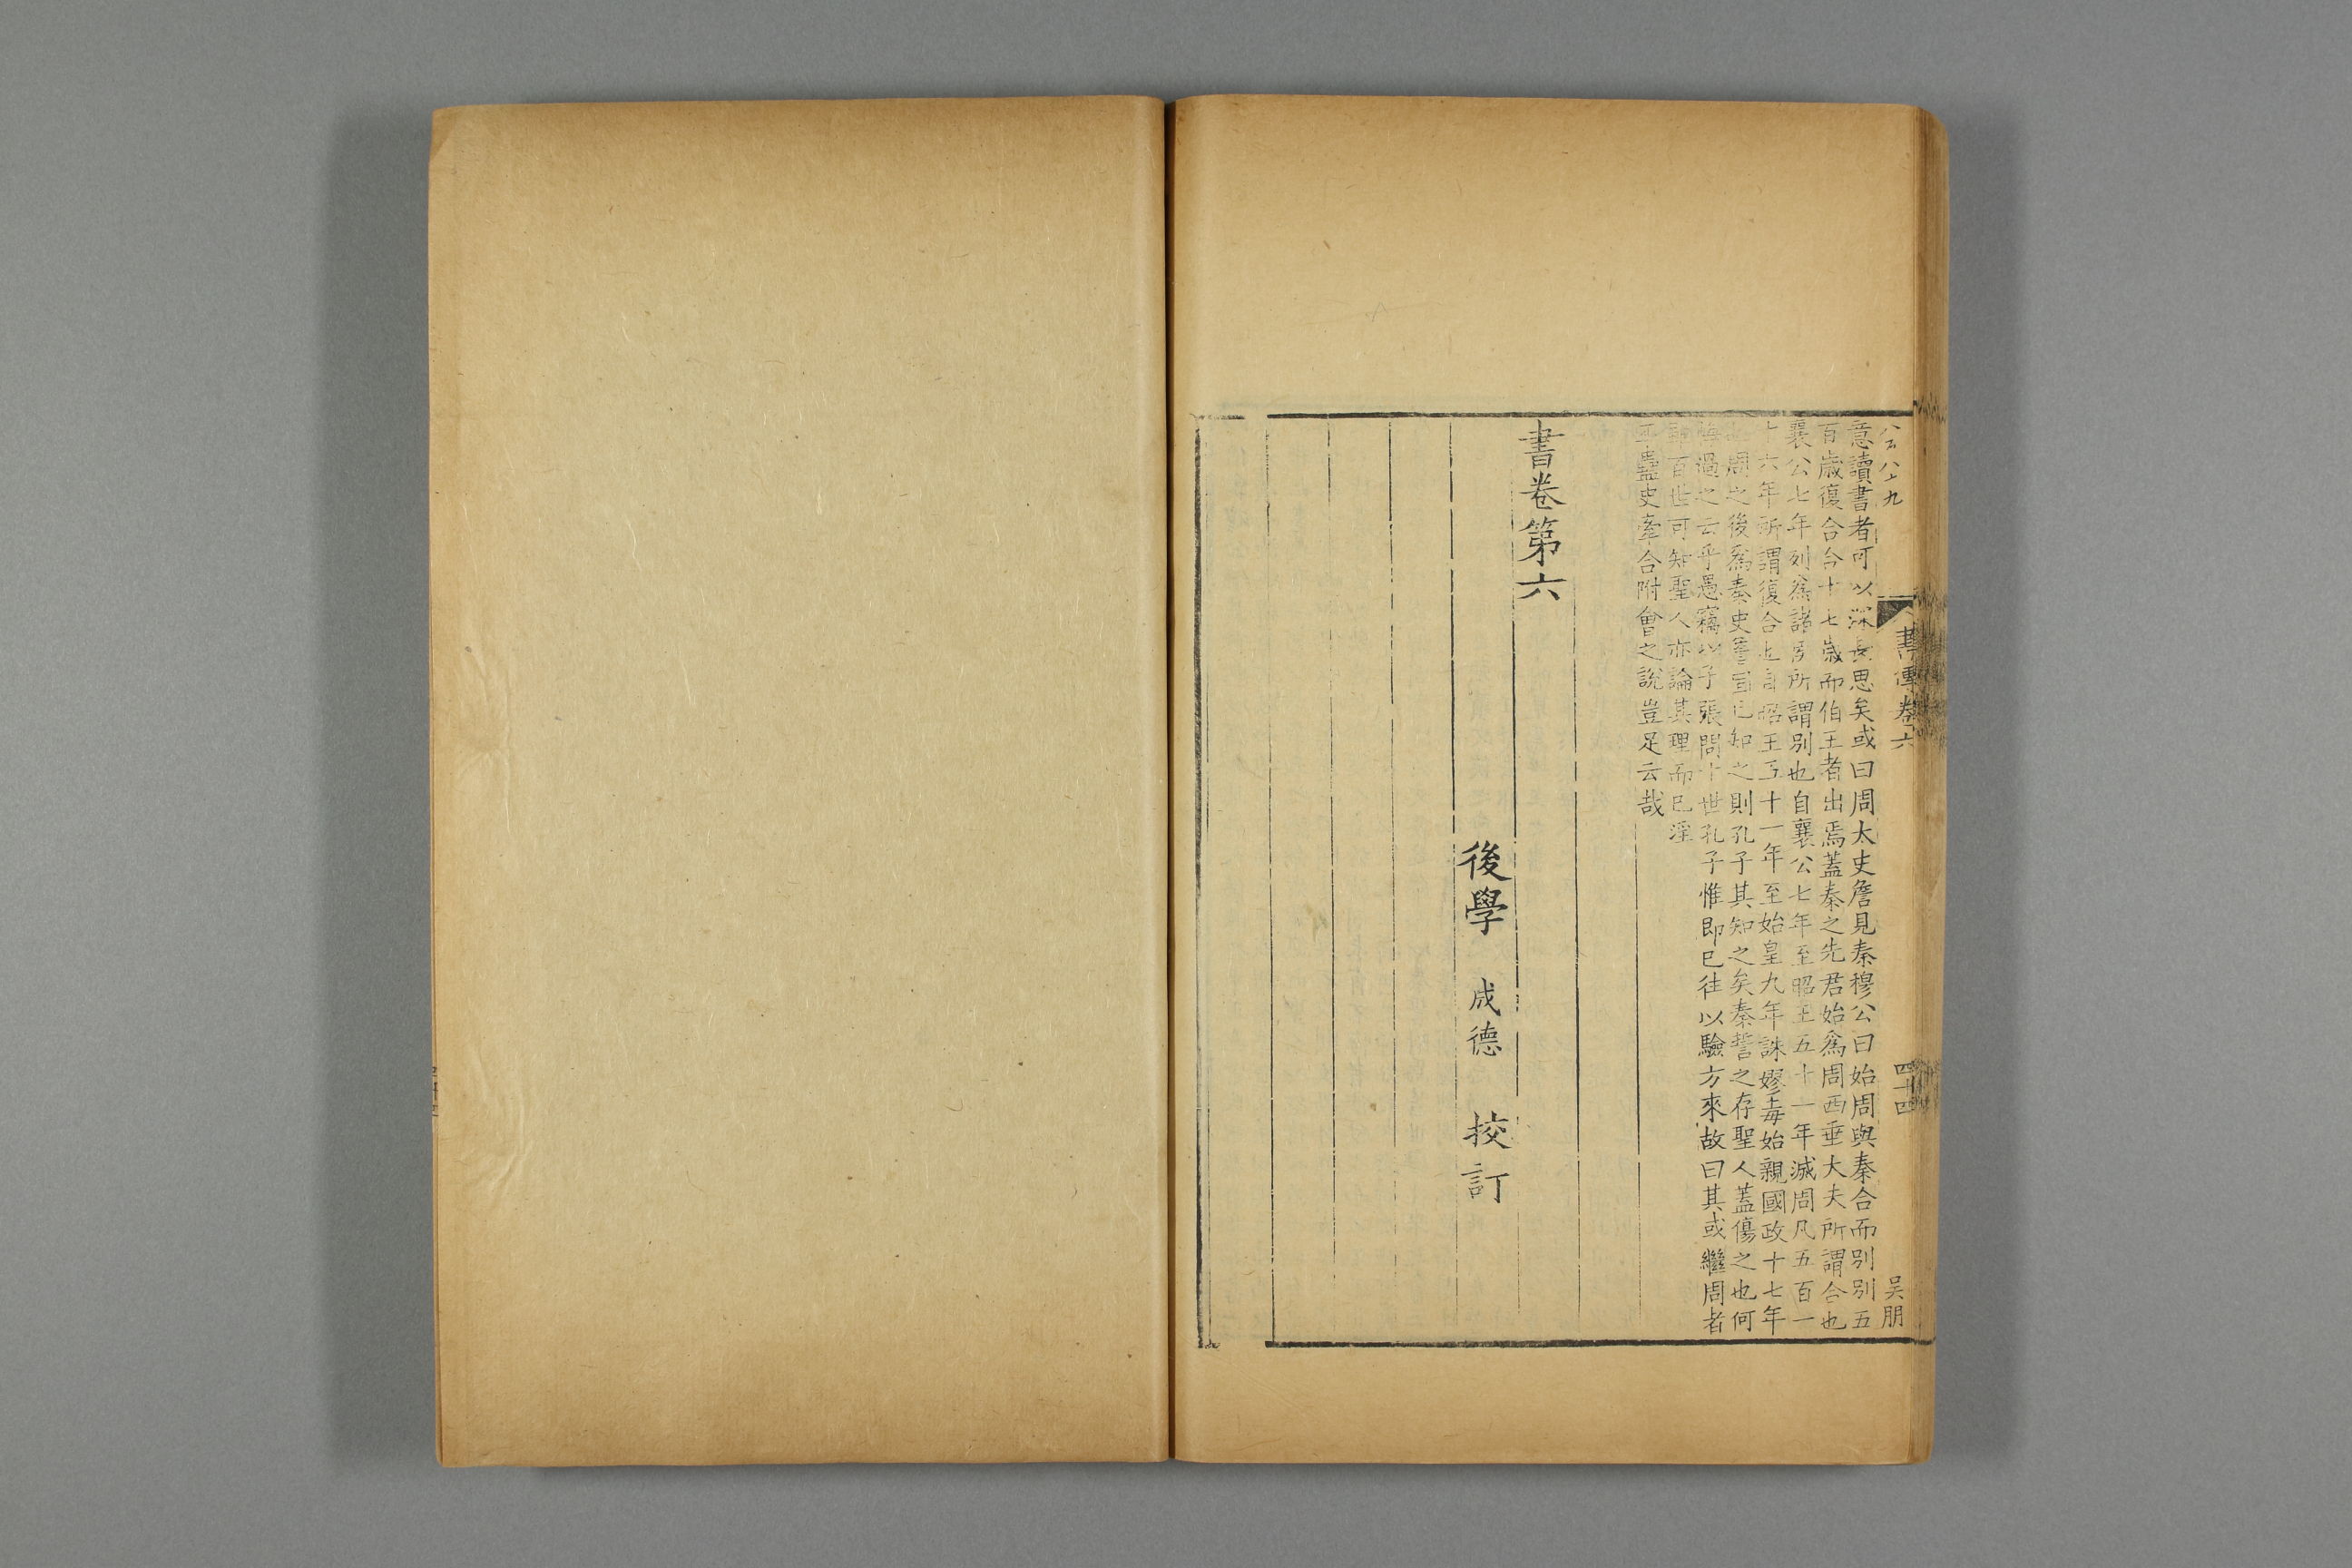 書傳卷六
四十四
吴朋
意讀書者可以深長思矣或曰周太史詹見秦穆公曰始周與秦合而別別五
百歳復合合十七歳而伯王者出焉蓋秦之先君始爲周西垂大夫所謂合也
襄公七年列爲諸侯所謂別也自襄公七年至昭王五十一年滅周凡五百一
十六年所謂復合也自昭王五十一年至始皇九年誅嫪毐始親國政十七年
周之後爲秦史詹固已知之則孔子其知之矣秦誓之存聖人蓋傷之也何
悔過之云乎愚竊以子張問十世孔子惟即已往以驗方來故曰其或繼周者
雖百世可知聖人亦論其理而已淫
巫蠱史牽合附會之說豈足云哉
書卷第六
後學 成德 挍訂